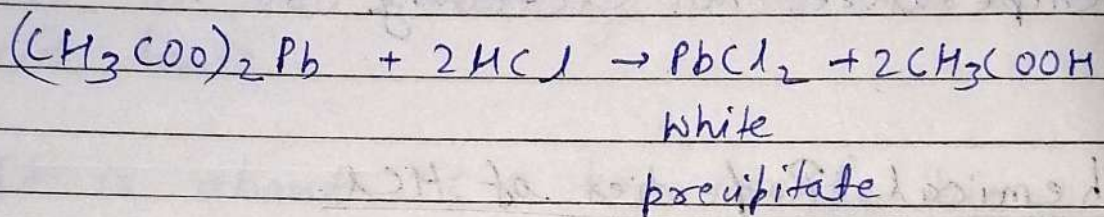 (CH₃COO)₂Pb + 2HCl → PbCl₂ + 2CH₃COOH
White
precipitate